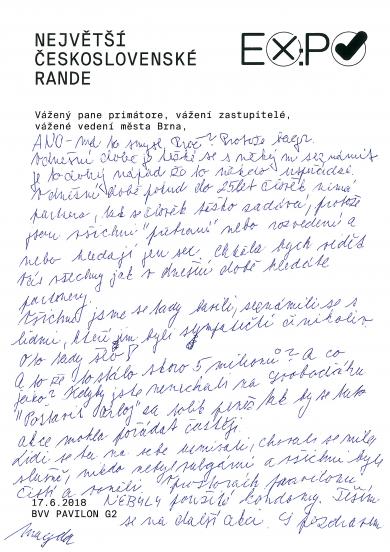 NEJVĚTŠÍ
ČESKOSLOVENSKÉ
RANDE
EXPO
Vážený pane primátore, vážení zastupitelé,
vážené vedení města Brna,
ANO - má to smysl. Proč? Protože
v dnešní době je těžké se s někým seznámit
je to dobrý nápad že to někdo uspořádal
v dnešní době pokud do 25 let člověk nemá
partnera, tak se člověk těžko zadává, protože
jsou všichni "přebraní" nebo rozvedení a
nebo hledají jen sex. Chtěla bych vidět
Vás všechny jak v dnešní době hledáte
partnery.
Všichni jsme se tady bavili, seznámili se s
lidmi, kteří jim byli sympatičtí či nikoliv
O to tady šlo!
A to že to stálo skoro 5 milionů? A co
jako? Kdyby jste nenechali na
"Postavit" za tolik peněz tak by se tato
akce mohla pořádat častěji
Lidi se tu na sebe usmívali, chovali se mile,
slušně, nikdo nebyl vulgární a všichni byli
čistí a voněli. V prostorách pavilonu
NEBYLY použité kondomy. Těším
17.6.2018
se na další akci. S pozdravem
BVV PAVILON G2
Magda